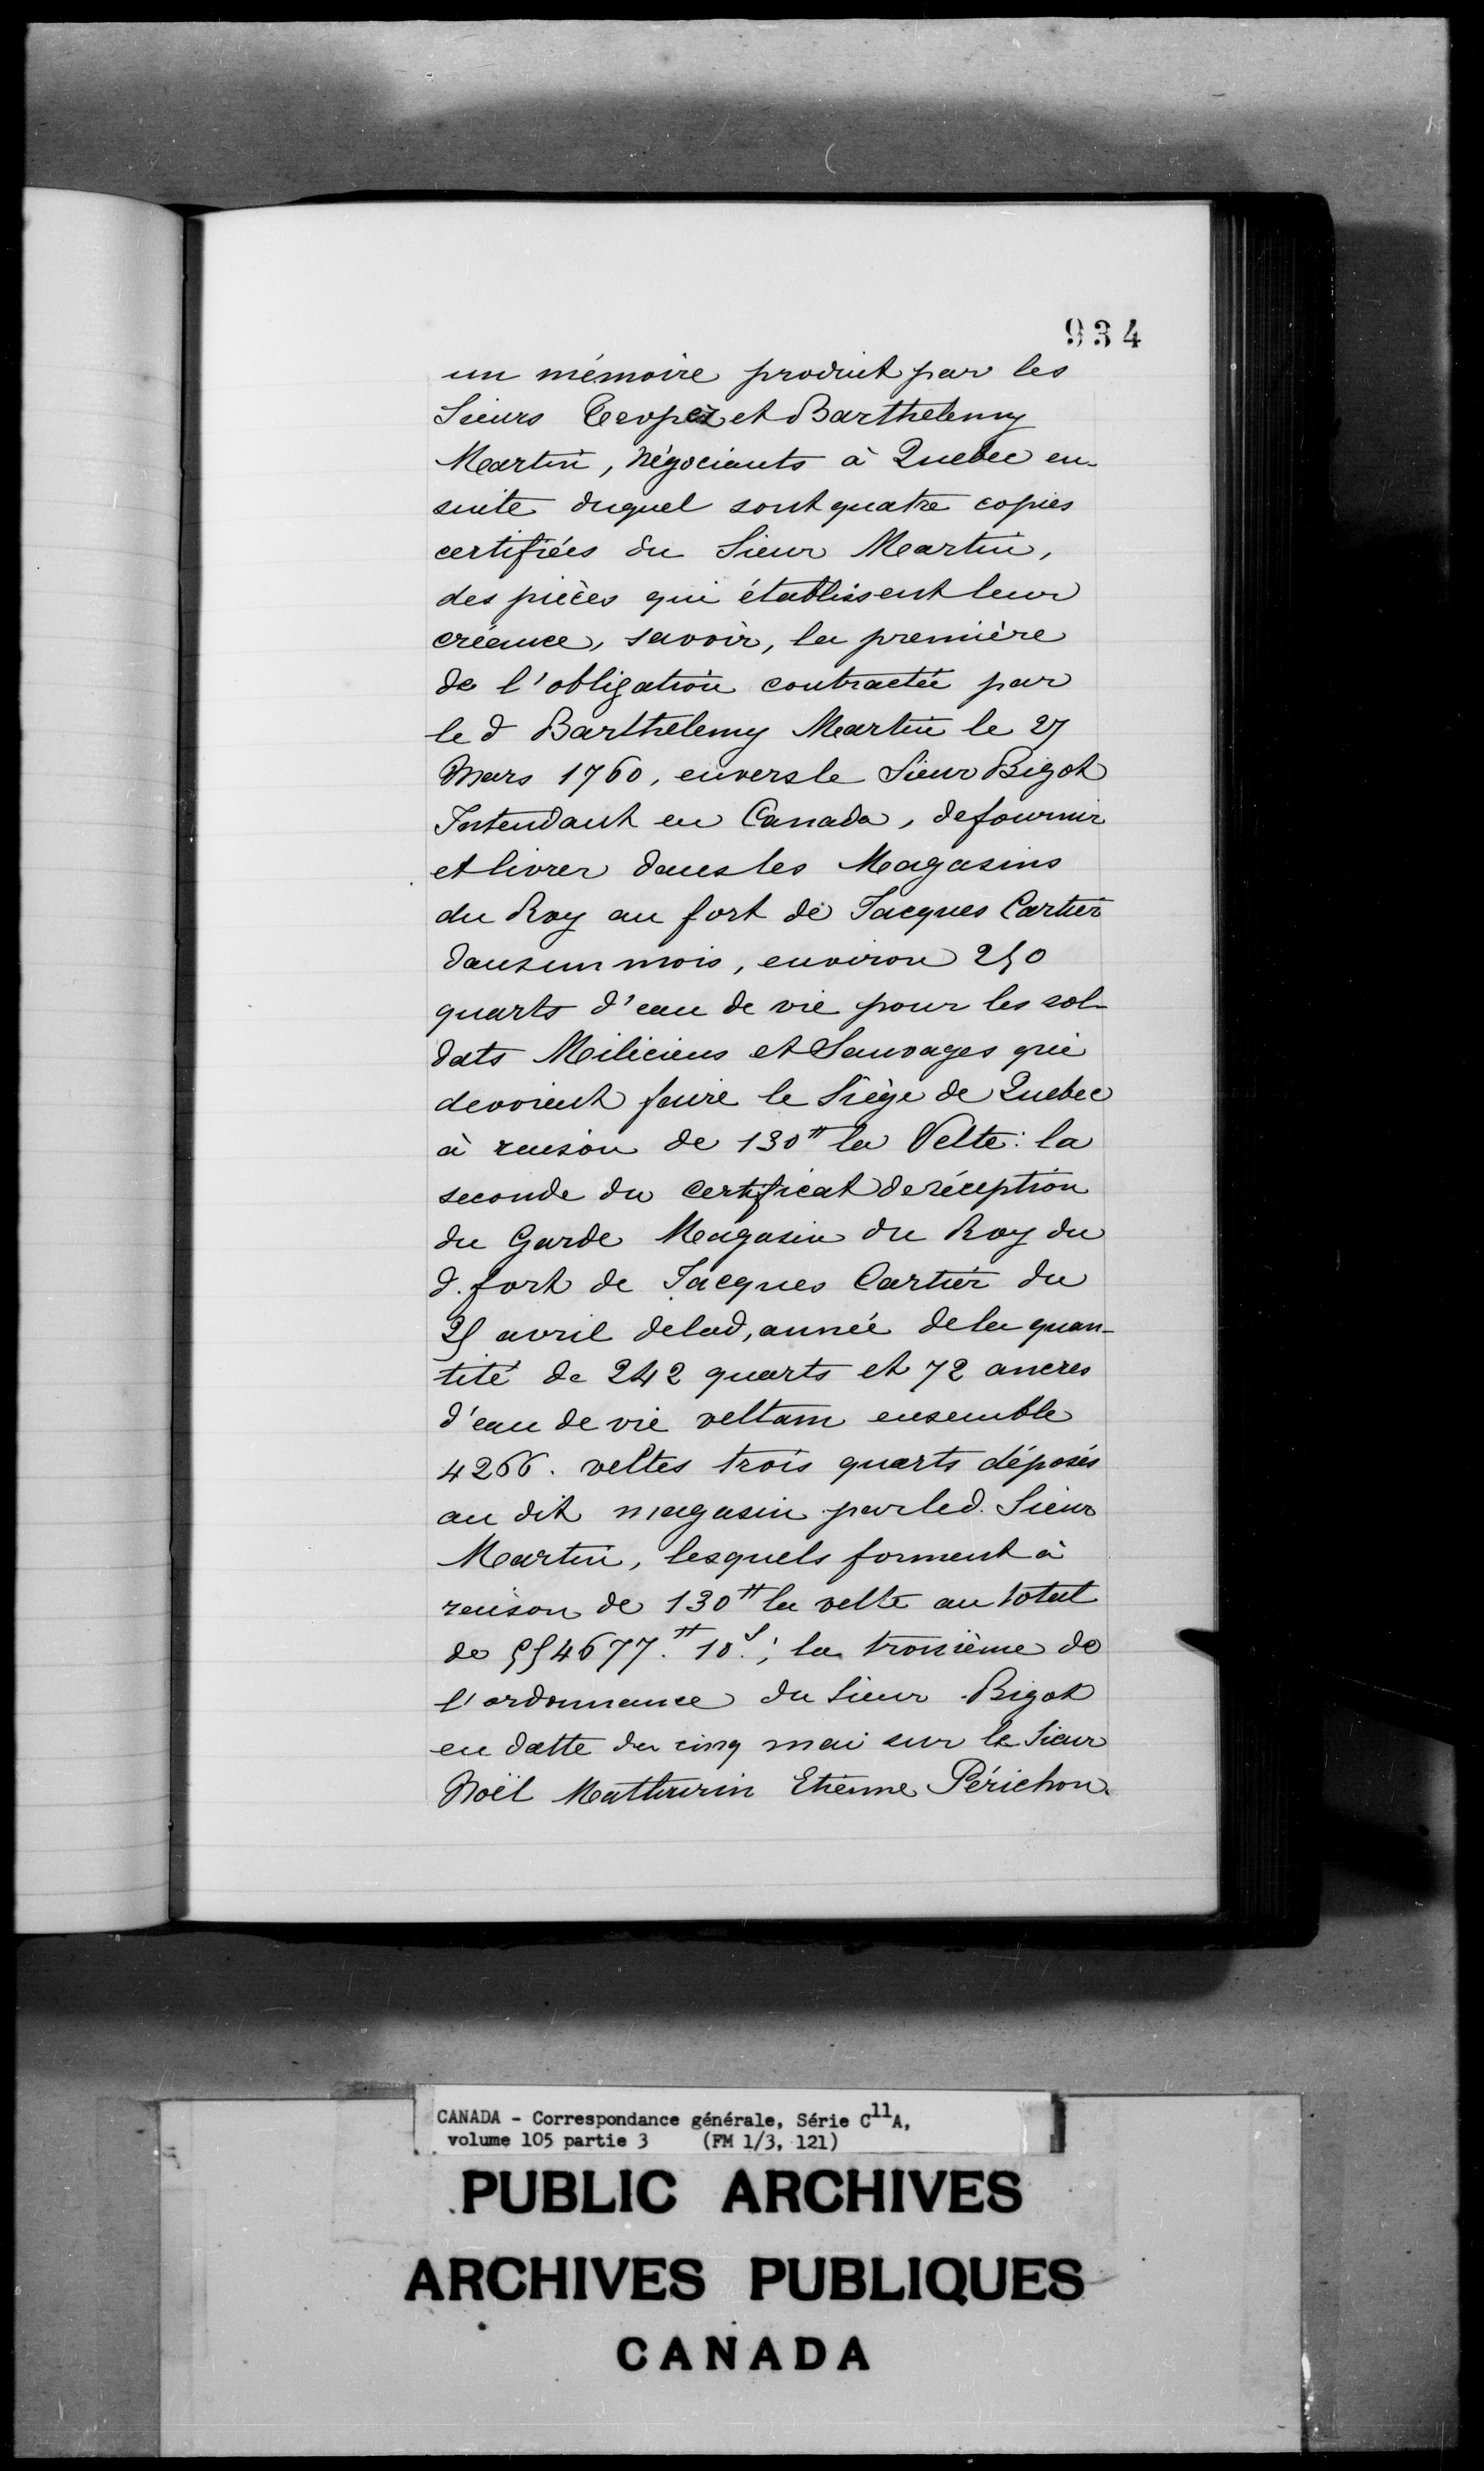 934
un mémoire produit par les
Sieurs et Barthelemy
Martin, Négociants à Quebec en-
suite duquel sont quatre copies
certifiées du Sieur Martin,
des pièces qui établissent leur
créance, savoir, la première
de l'obligation contractée par
le d Barthelemy Martin le 27
Mars 1760, envers le Sieur Bigot
Intendant en Canada, de fournir
et livrer dans les Magasins
du Roy au fort de Jacques Cartier
dans un mois, environ 250
quarts d'eau de vie pour les sol-
dats Miliciens et Sauvages qui
devoient faire le Siège de Quebec
à raison de 130₶ la Velte: la
seconde du certificat de réception
du Garde Magasin du Roy du
d. fort de Jacques Cartier du
25 avril de lad, année de la quan-
tité de 242 quarts et 72 ancres
d'eau de vie veltam ensemble
4266. veltes trois quarts déposés
au dit magasin par led. Sieur
Martin, lesquels forment à
raison de 130₶ la velte au total
de 554677.₶ 10.s; la troisième de
l'ordonnance du Sieur Bigot
en datte du cinq mai sur le Sieur
Noël Matturin Etienne Périchon.
CANADA - Correspondance générale, Série C11A,
volume 105 partie 3 (FM 1/3, 121)
PUBLIC ARCHIVES
ARCHIVES PUBLIQUES
CANADA